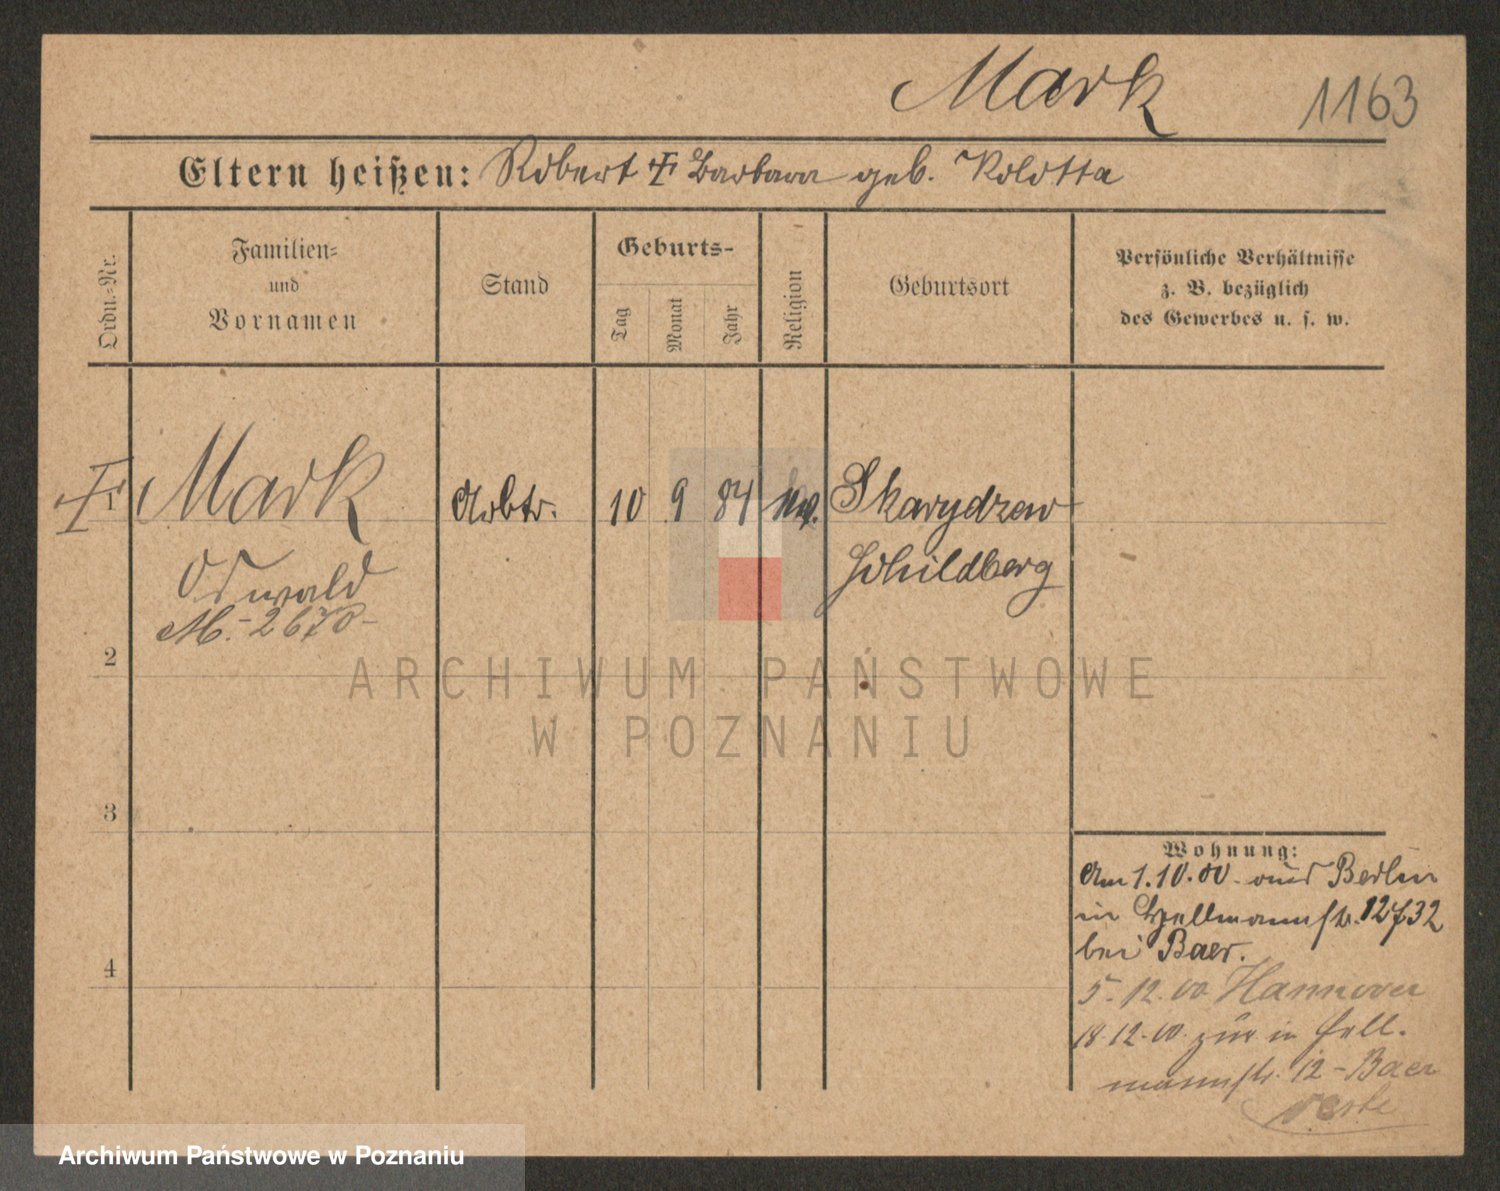 Mark 1163
Eltern heißen: Robert Barbara geb. Kolotta
Ordn.-Nr.
Familien-
und
Vornamen
Stand
Geburts-
Tag
Monat
Jahr
Religion
Geburtsort
Persönliche Verhältnisse
z. B. bezüglich
des Gewerbes u. s. w.
1 Mark Arbtr. 10 9 84 Skarydzew
Oswald Schildberg
M.-2670-
2
3
4
Wohnung:
Am 1.10.00 aus Berlin
in 12/32
bei Baer.
5.12.00 Hannover
18.12.00 zur in Hell.
mannstr. 12 - Baer
ARCHIWUM PAŃSTWOWE
W POZNANIU
Archiwum Państwowe w Poznaniu